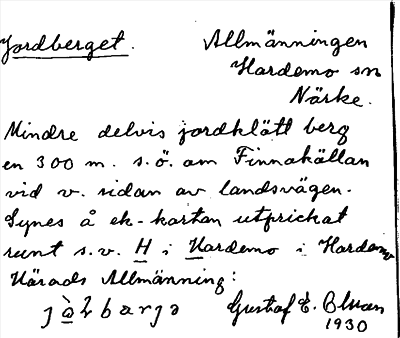 Jordberget. Allmänningen
Hardemo sn
Närke.
Mindre delvis jordklätt berg
en 300 m. s.ö. om Finnakällan
vid v. sidan av landsvägen.
Synes å ek-kartan utprickat
runt s.v. H i Hardemo i Hardemo
Härads Allmänning:
Gustaf E.
1930